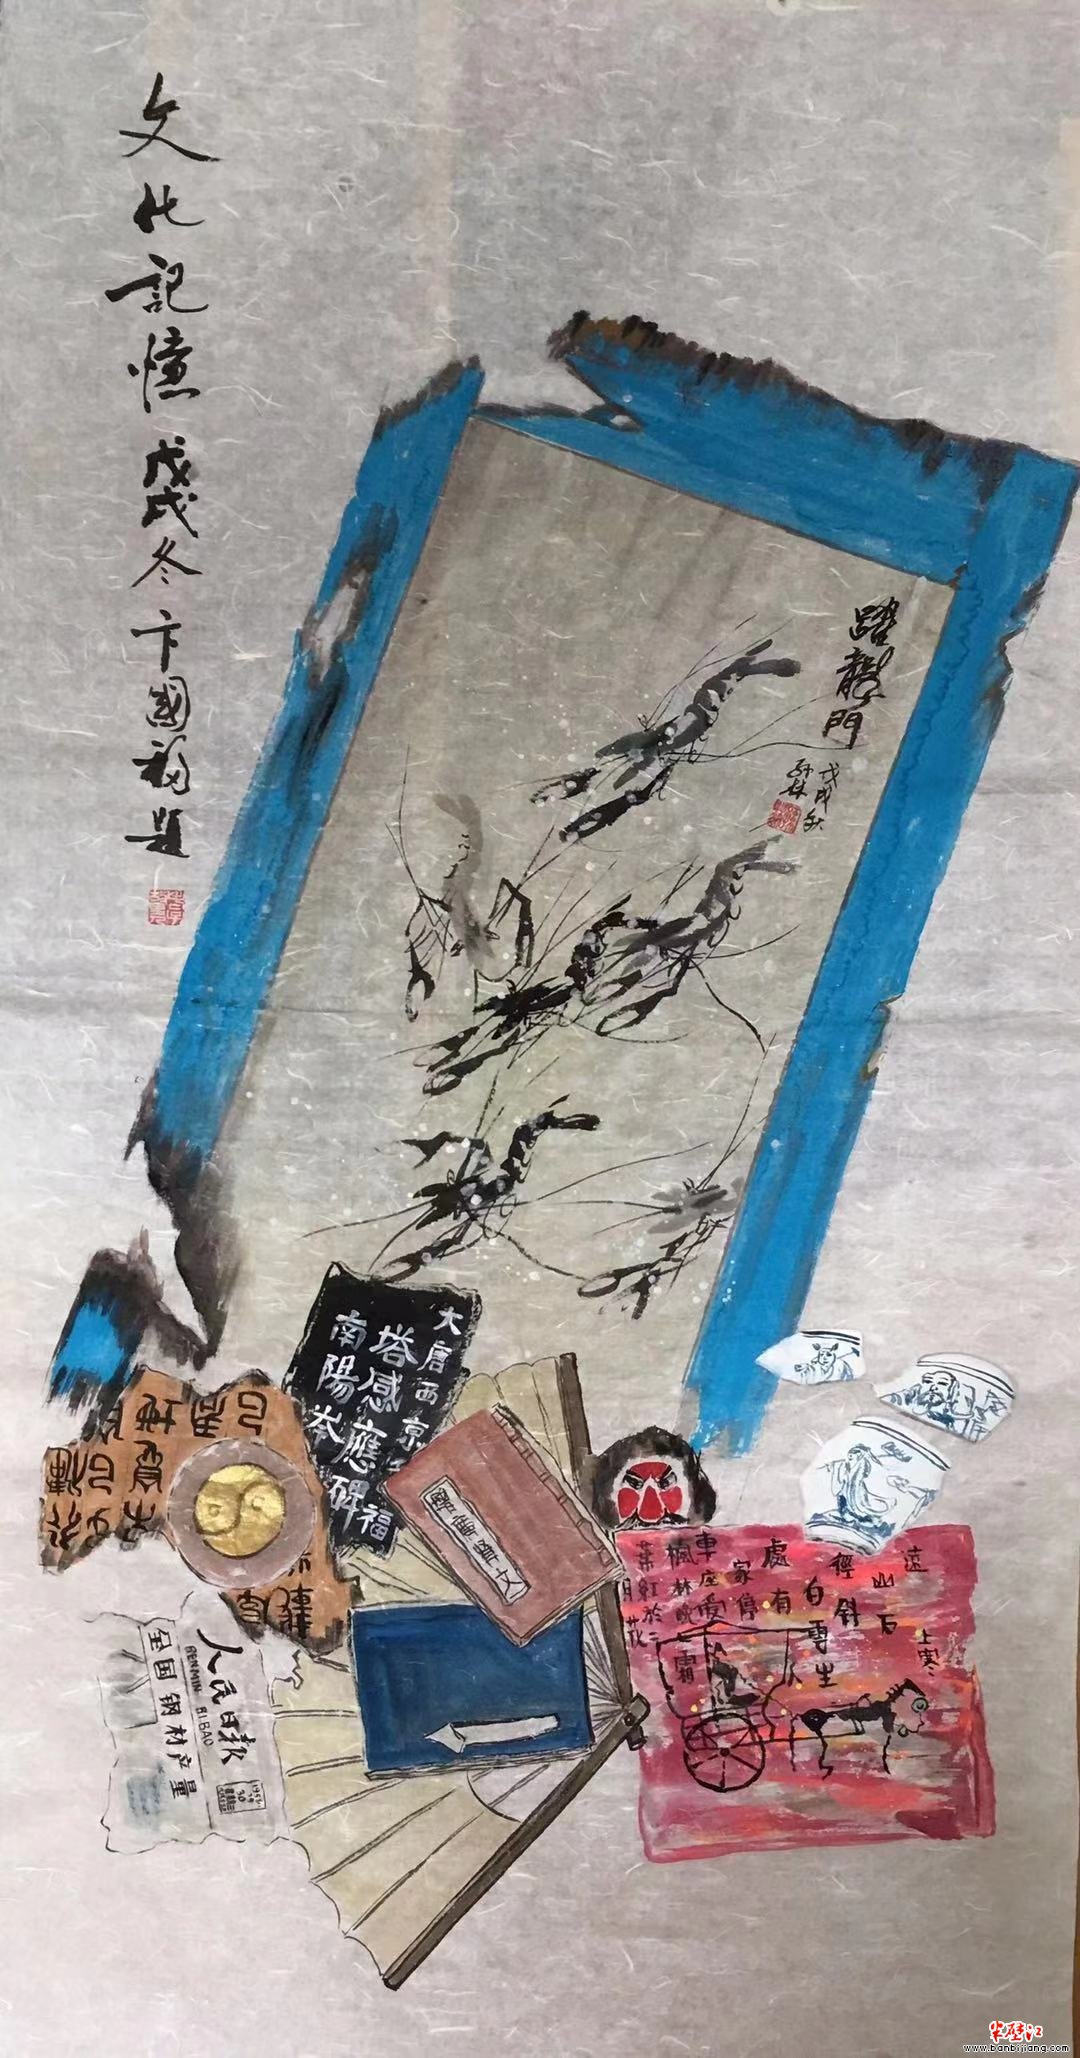 文化記憶戊戌冬卞國福題
躍龍門
戊戌秋
大唐西京
塔感應碑
南陽岑
福
人民日報
RENMIN RIBAO
全国钢材产量
1953
30
遠
上寒
山石
徑斜
白雲生
處有
家停
車座愛
楓林晚
霜
葉紅於二
月花
半壁江
www.banbijiang.com